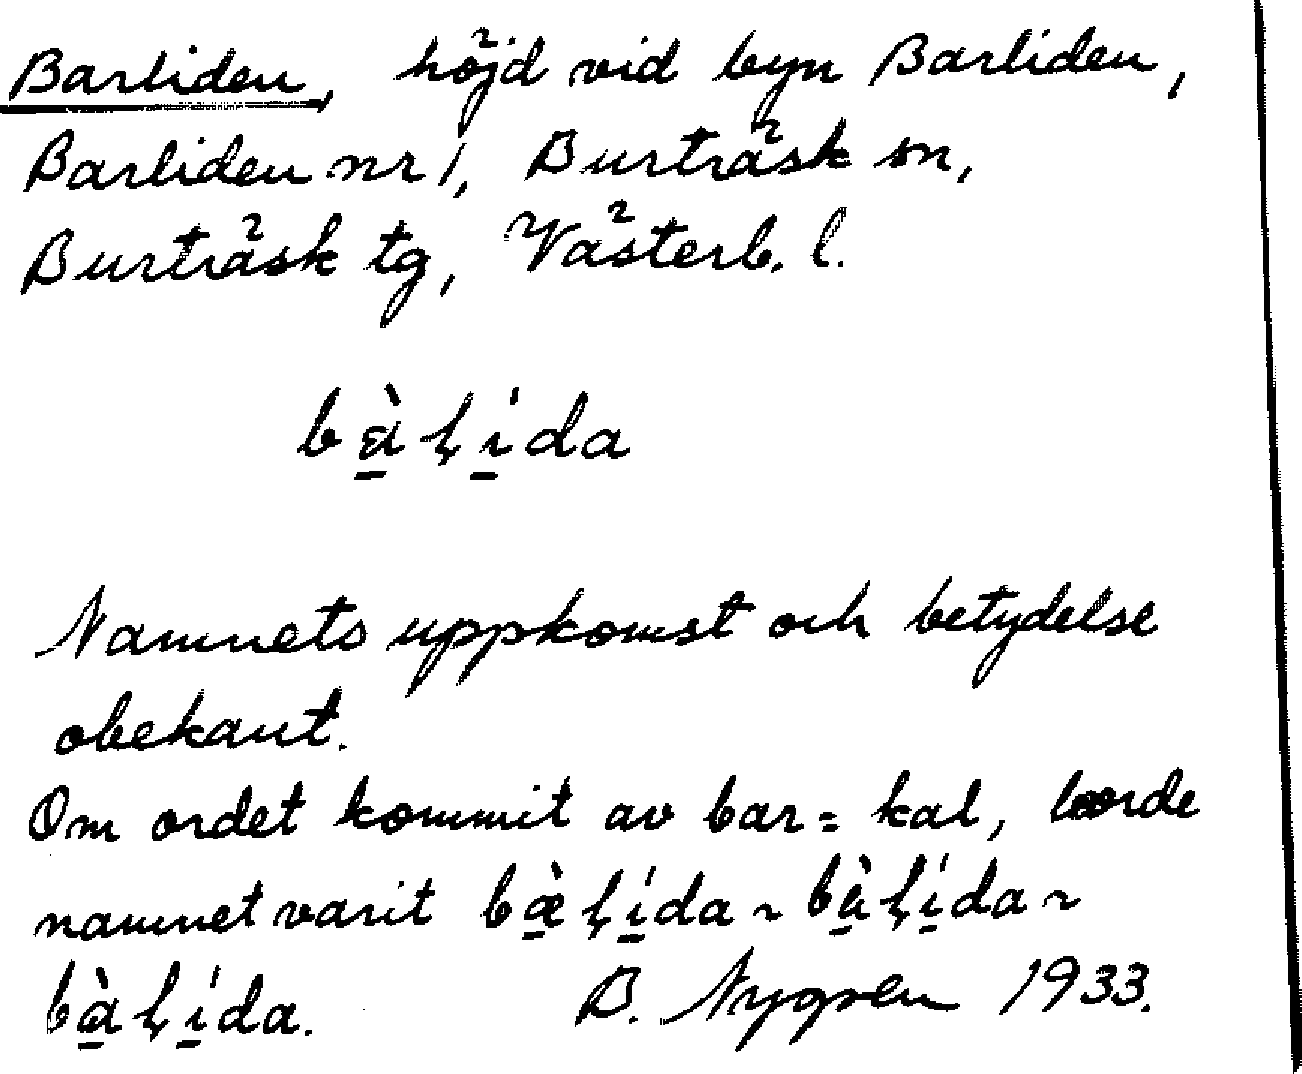 Barliden, höjd vid byn Barliden,
Barliden nr 1, Burträsk sn,
Burträsk tg, Västerb. l.
Namnets uppkomst och betydelse
obekant.
Om ordet kommit av bar = kal, borde
namnet varit
B. Nygren 1933.